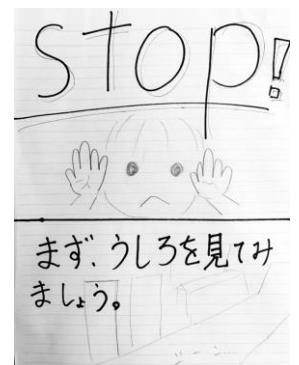 stop!
まず、うしろを見てみ
ましょう。